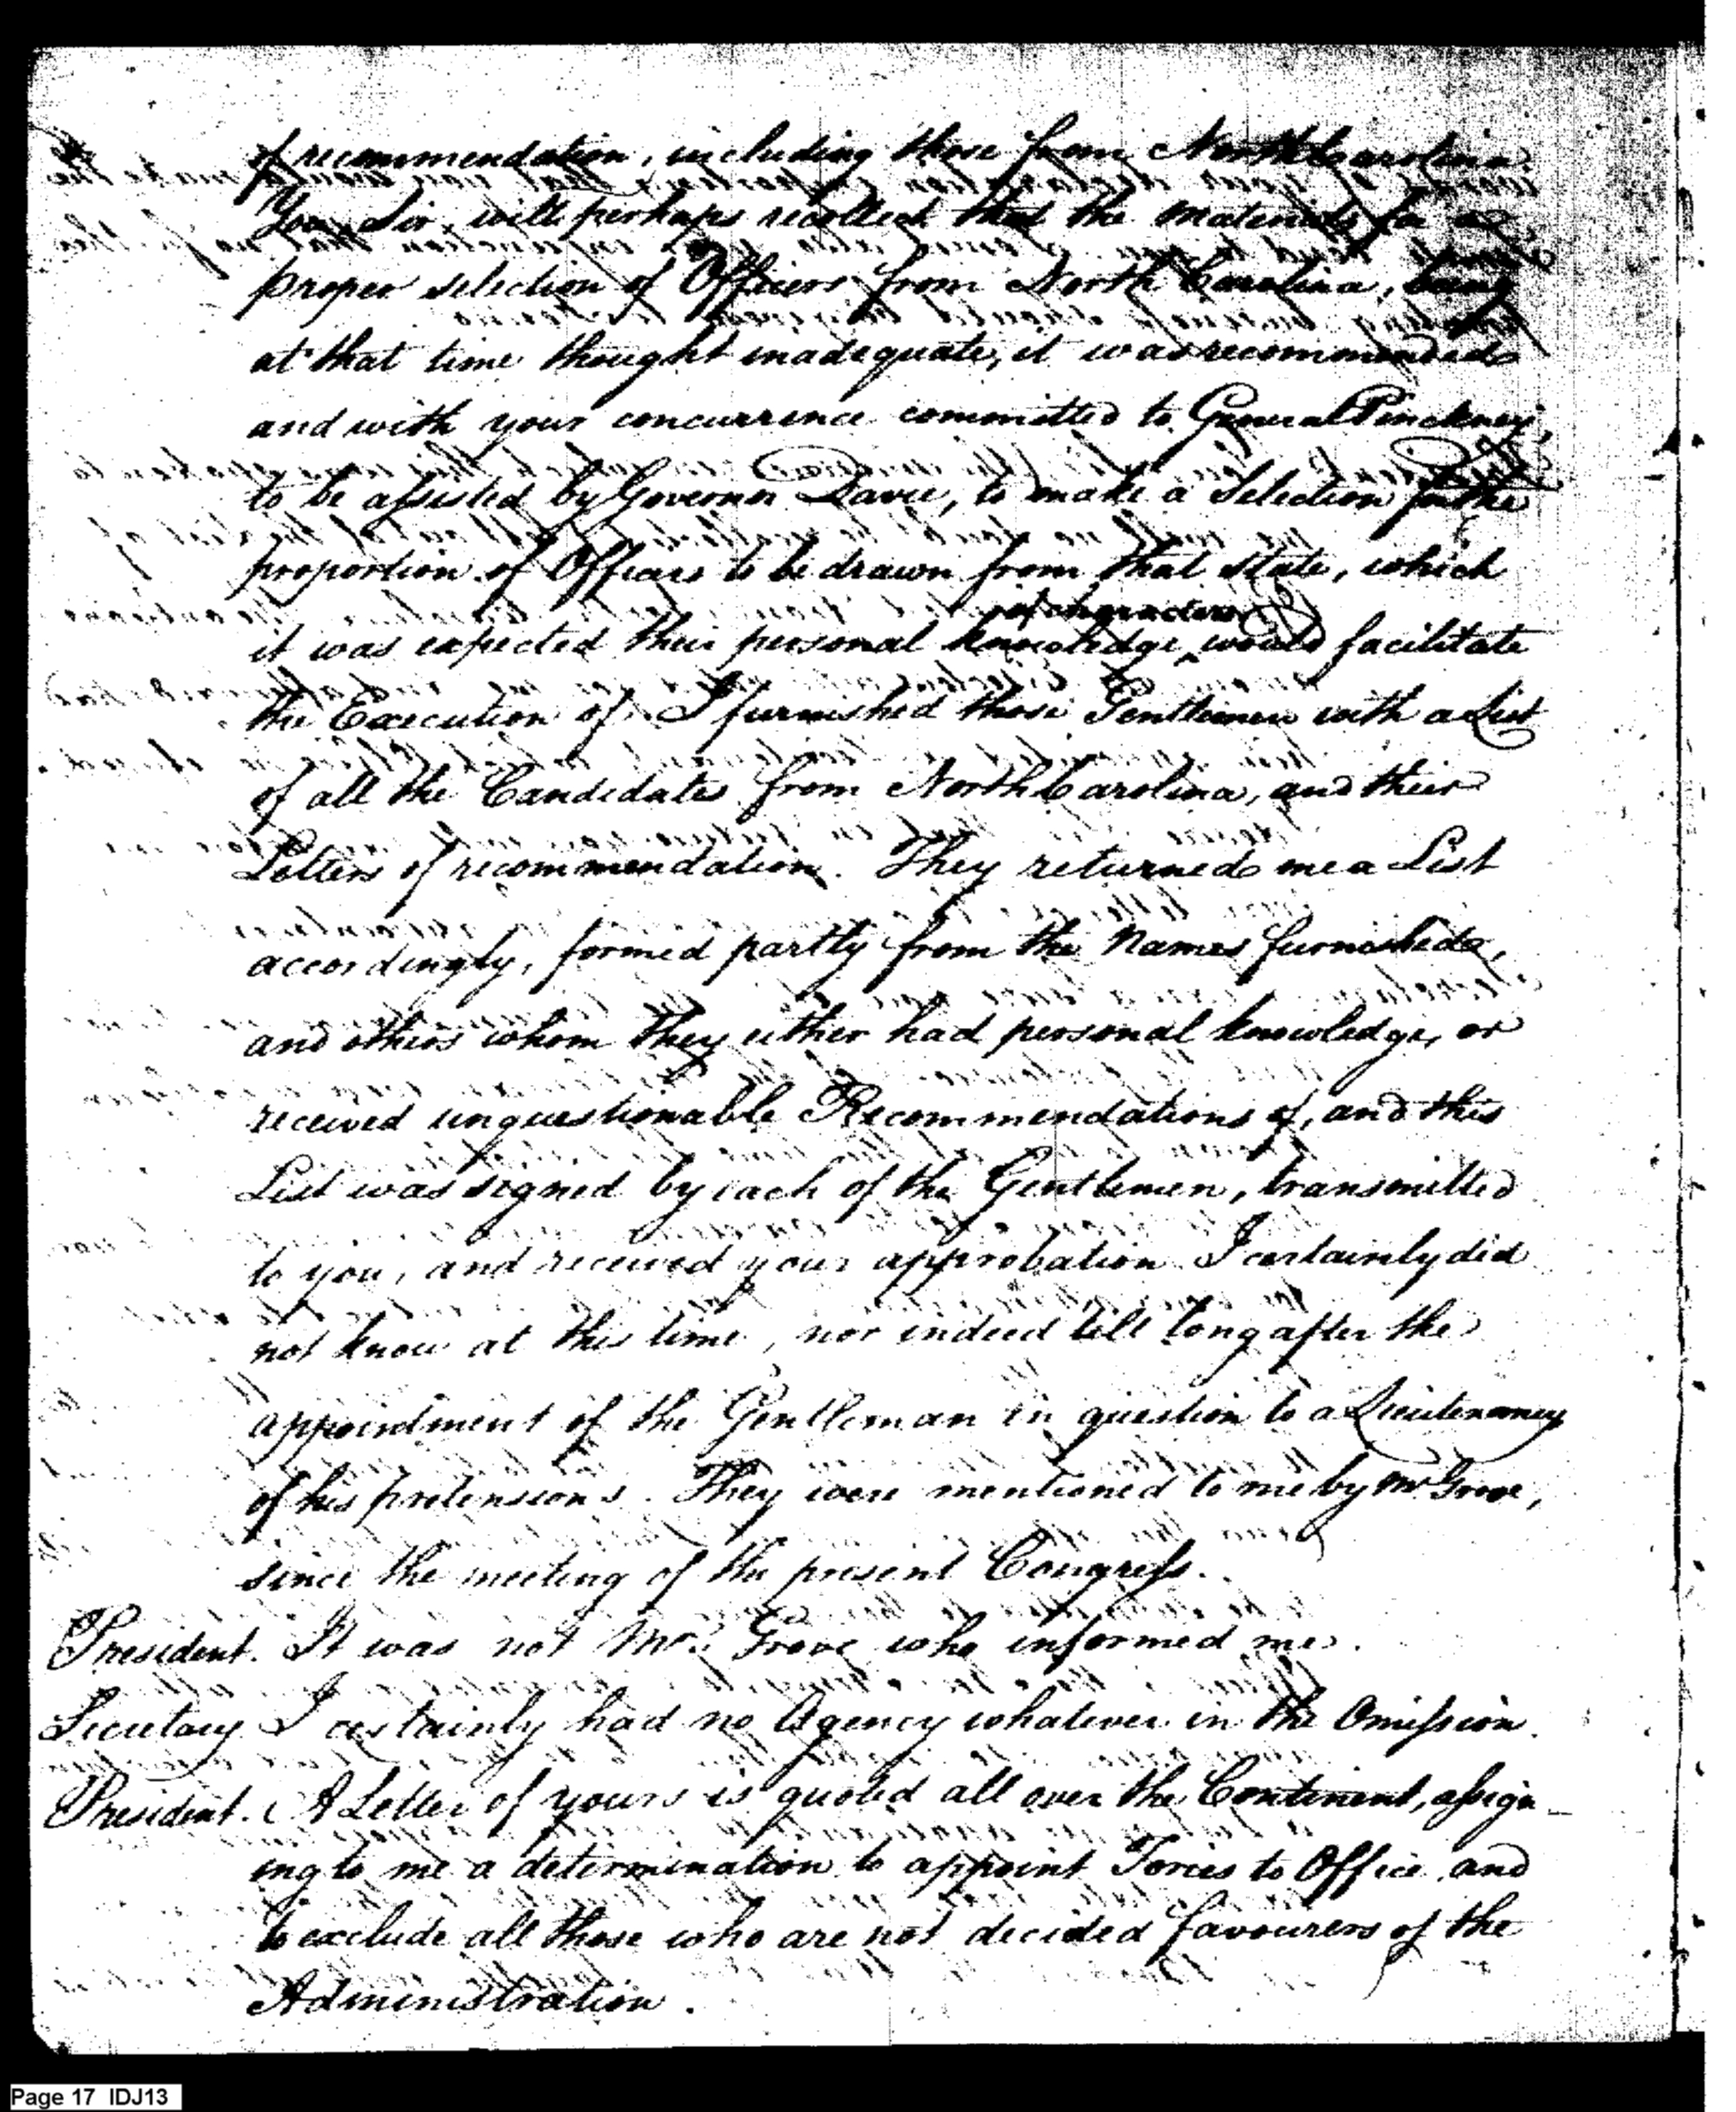 of recommendation, including those from North Carolina
You, Sir, will perhaps recollect that the materials for a
proper selection of Officers from North Carolina, being
at that time thought inadequate, it was recommended
and with your concurrence committed to General Pinckney,
to be assisted by Governor Davie, to make a Selection for the
proportion of Officers to be drawn from that State, which
of characters
it was expected their personal knowledge ^ would facilitate
the Execution of. I furnished those Gentlemen with a List
of all the Candidates from North Carolina, and their
Letters of recommendation. They returned me a List
accordingly, formed partly from the Names furnished,
and others whom they either had personal knowledge, or
received unquestionable Recommendations of, and this
List was signed by each of the Gentlemen, transmitted
to you, and received your approbation. I certainly did
not know at this time, nor indeed till long after the
appointment of the Gentleman in question to a Lieutenancy
of his pretensions. They were mentioned to me by Mr Grove,
since the meeting of the present Congress.
President. It was not Mr. Grove who informed me.
Secretary I certainly had no Agency whatever in the Omission.
President. A Letter of yours is quoted all over the Continent, assign-
ing to me a determination to appoint Tories to Office and
to exclude all those who are not decided favourers of the
Administration.
Page 17 IDJ13